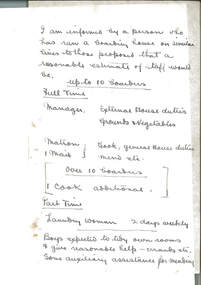 I am informed by a person who
has run a boarding house on similar
lines to those proposed that a
reasonable estimate of staff would
be;
up to 10 boarders
Full Time
Manager, External House duties
grounds & vegetables
Matron } Cook, general House duties
1 Maid } mend etc.
Over 10 boarders
1 Cook additional.
Part Time
Laundry Woman 2 days weekly
Boys expected to tidy own rooms
& give reasonable help – errands etc.
Some auxiliary assistance for